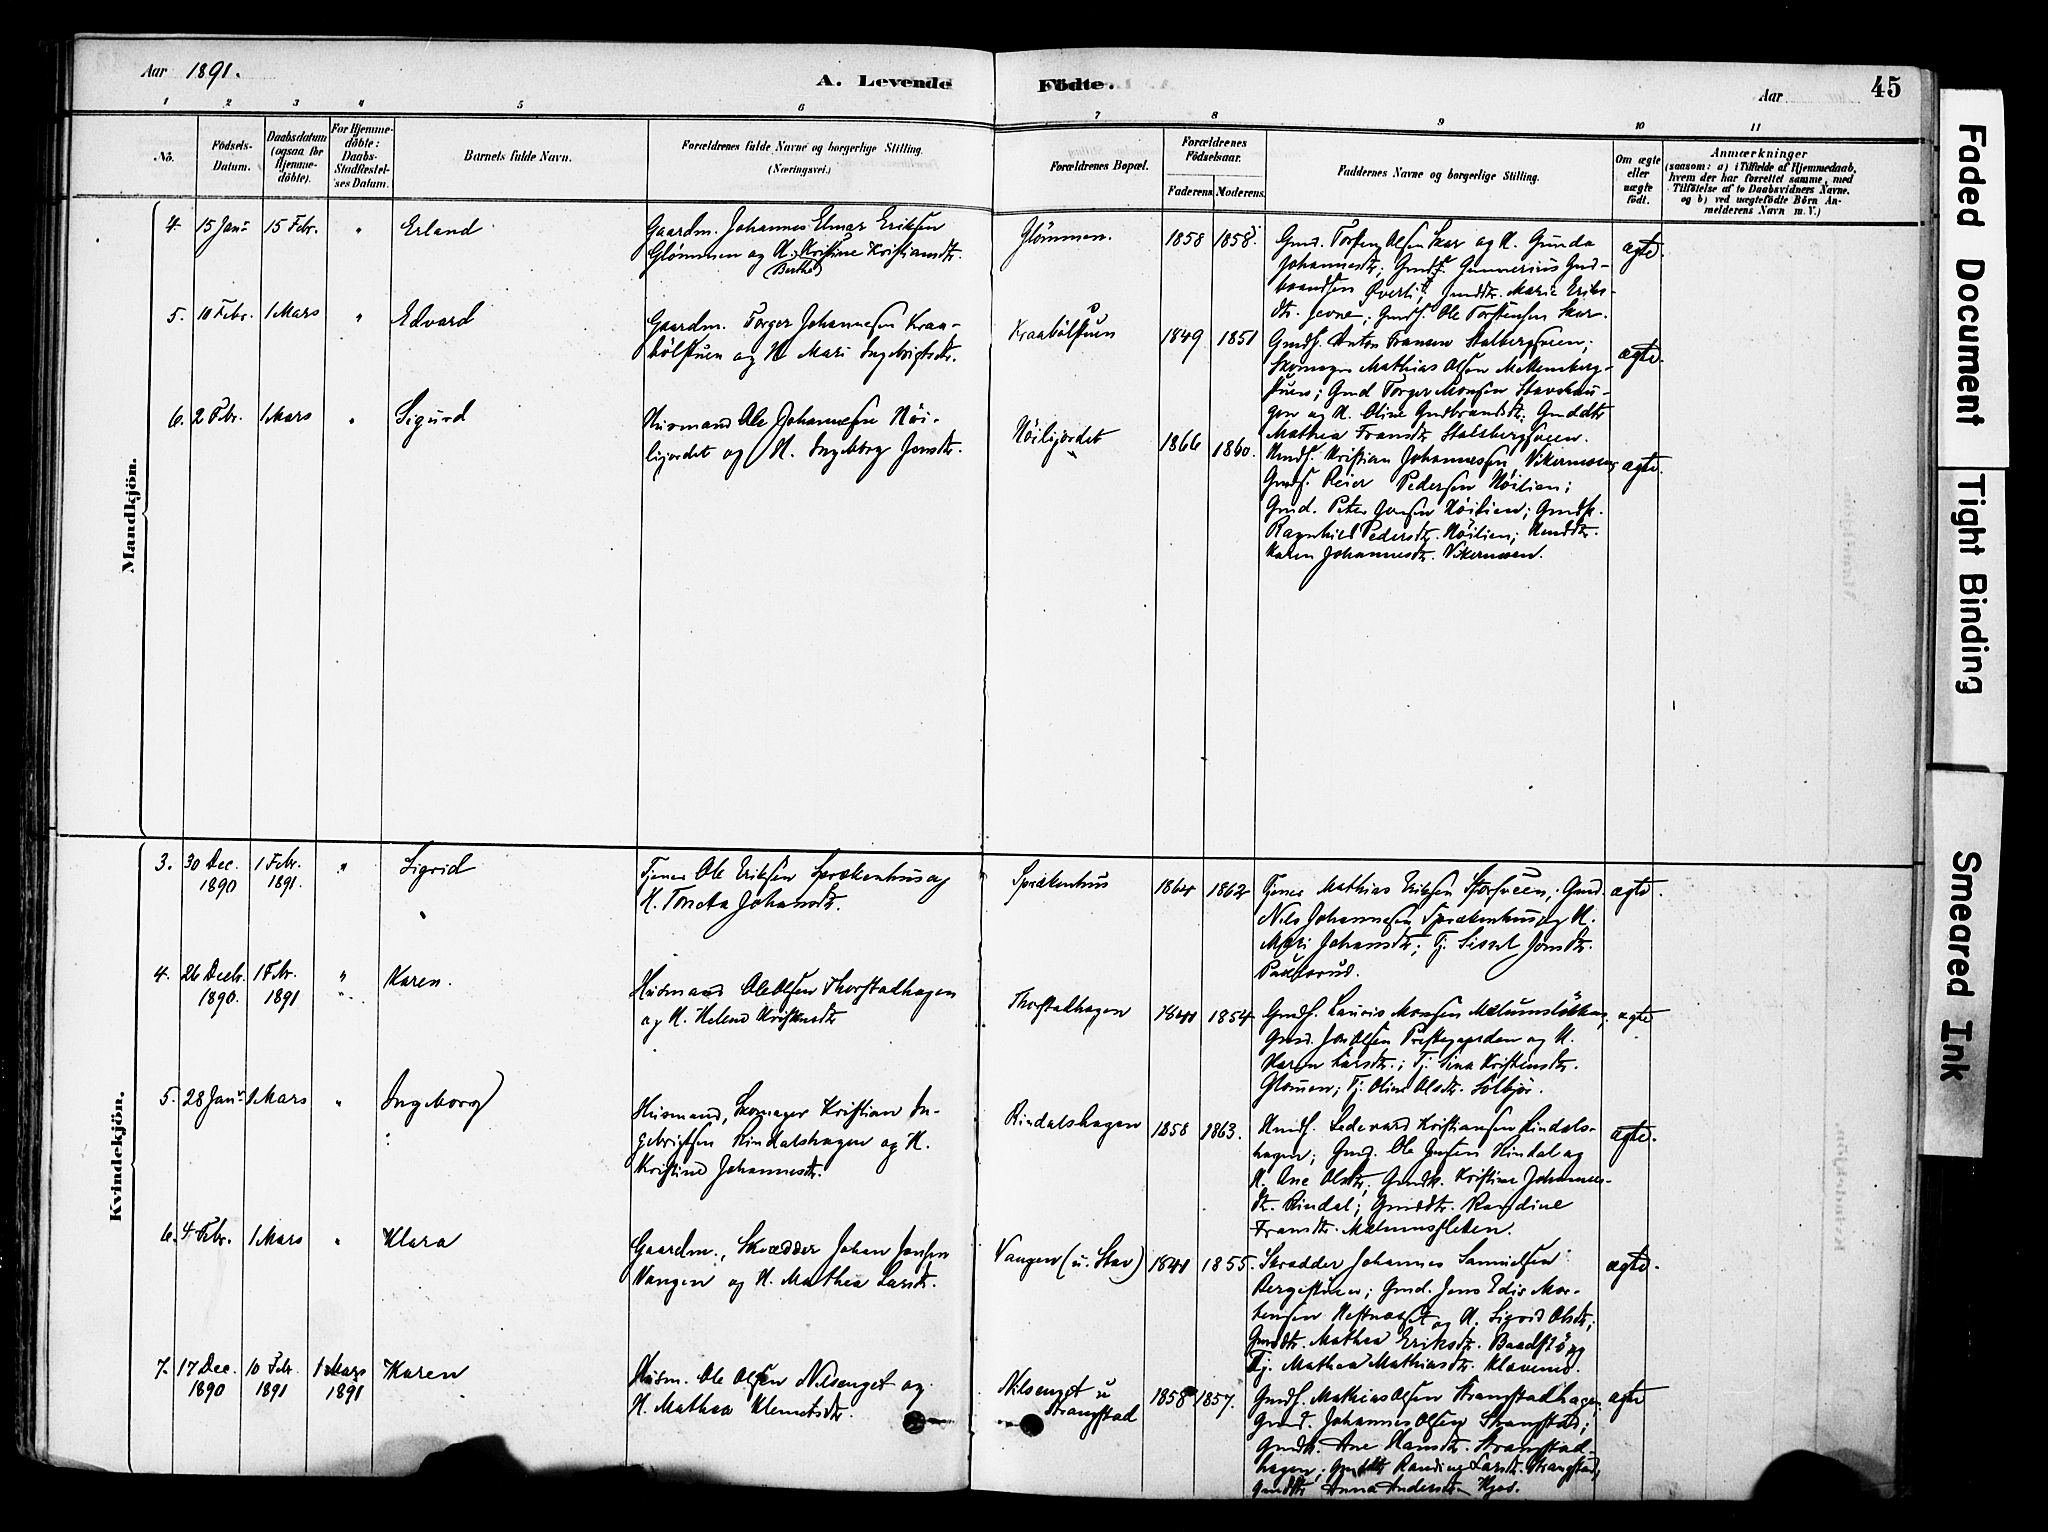 Aar 1891.
A. Levende
Födte.
Aar
45
1 2 3 4 5 6 7 8 9 10 11
No.
Födsels-
Datum.
Daabsdatum
(ogsaa for
Hjemme-
döbte).
For Hjemme-
döbte:
Daabs-
Stadfæstel-
ses Datum.
Barnets fulde Navn.
Forældrenes fulde Navne og borgerlige Stilling.
(Næringsvei.)
Forældrenes Bopæl.
Forældrenes
Födselsaar.
Faderens. Moderens.
Faddernes Navne og borgerlige Stilling.
Om ægte
eller
uægte
födt.
Anmærkninger
(saasom: a) i Tilfælde af Hjemmedaab,
hvem der har forrettet samme, med
Tilföielse af to Daabsvidners Navne,
og b) ved uægtefödte Börn An-
melderens Navn m. V.)
Mandkjön.
4. 15 Jan. 15 Febr. " Erland
Gaardm. Johannes Elmar Eriksen
Glömmen og H. Kristine Kristiansdtr.
(Berthe)
Glömmen.
1858 1858
Gmd. Torsten Olsen Skar og H. Gunda
Johannesdtr; Gmds. Gunnerius Gud-
brandsen Överli; Gmddtr. Marie Eriks-
dtr. Jevne; Gmds. Ole Torstensen Skar.
ægte.
5. 10 Febr. 1 Mars " Edvard
Gaardm. Torger Johannesen Kraa-
bölstuen og H. Mari Ingebrigtsdtr.
Kraabölstuen
1849 1851
Gmds. Anton Fransen Stalsbergsveen;
Skomager Mathias Olsen Mellemberg-
stuen; Gmd Torger Monsen Stavshau-
gen og H. Oline Gudbrandsdtr; Gmddtr
Mathea Fransdtr Stalsbergsveen.
ægte.
6. 2 Febr. 1 Mars " Sigurd
Husmand Ole Johannesen Höi-
lijordet og H. Ingeborg Jonsdtr.
Höilijordet
1866 1860.
Hmds. Kristian Johannessen Vikermoen;
Gmds. Reier Pedersen Höilien;
Gmd. Peter Jensen Höilien; Gmdk.
Ragnhild Pedersdtr. Höilien; Hmddtr.
Karen Johannesdtr. Vikermoen.
ægte.
Kvindekjön.
3. 30 Dec. 1 Febr. " Sigrid
1890 1891.
Tjener Ole Eriksen Sprækenhus og
H. Toneta Johansdtr.
Sprækenhus
1864 1862
Tjener Mathias Eriksen Storsveen; Gmd.
Nils Johannesen Sprækenhus og H.
Mari Johansdtr; Tj. Sissel Jonsdtr.
ægte.
4. 26 Decb. 1 Febr. " Karen.
1890. 1891
Husmand Ole Olsen Thorstadhagen
og H. Helene Kristensdtr
Thorstadhagen
1841 1854
Gmds. Lauris Monsen Mælumslökken;
Gmd. Jon Olsen Prestegaarden og H.
Karen Larsdtr.; Tj. Lina Kristensdtr.
Glömen; Tj. Oline Olsdtr. Solbjör.
ægte
5. 28 Jan. 1 Mars " Ingeborg
Husmand, Skomager Kristian In-
gebrigtsen Rindalshagen og H.
Kristine Johannesdtr.
Rindalshagen
1858 1863.
Hmds. Ledevard Kristiansen Rindals-
hagen; Gmd. Ole Jensen Rindal og
H. Ane Olsdtr; Gmdk. Kristine Johannes-
dtr. Rindal; Gmddtr. Randine
Fransdtr. Mælumsfleten.
ægte.
6. 4 Febr. 1 Mars " Klara
Gaardm., Skrædder Johan Jonsen
Vangen og H. Mathea Larsdtr.
Vangen (u. Stav)
1841 1855.
Skrædder Johannes Samuelsen
Bergestuen; Gmd. Jens Edis Mor-
tensen Hestnæset og H. Sigrid Olsdtr;
Gmddtr. Mathea Eriksdtr. Baadstö og
Tj. Mathea Mathiasdtr. Klavenes.
ægte.
7. 17 Dec. 10 Febr. 1 Mars Karen
1890 1891 1891
Husm. Ole Olsen Nilsenget og
H. Mathea Klemetsdtr.
Nilsenget u
Strangstad
1858 1857.
Gmds. Mathias Olsen Strangstadhagen
Gmd. Johannes Olsen Strangstad;
Gmdk. Ane Hansdtr. Strangstad-
hagen; Gmddtr Randine Larsdtr. Strangstad;
Gmddtr Anna Andersdtr. Kjos.
ægte
Faded Document
Tight Binding
Smeared Ink